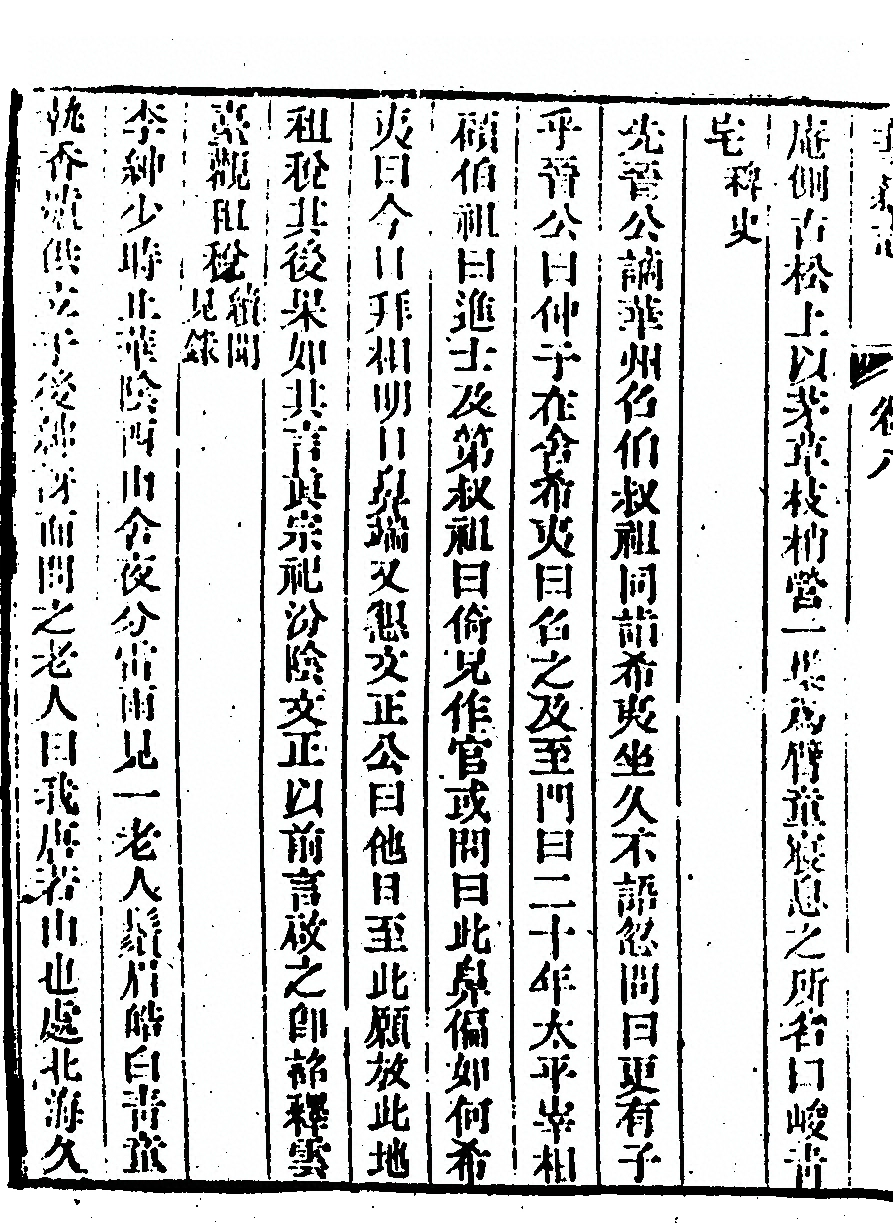 卷八
庵側古松上以茅草枝梢營一巢爲臂童寢息之所名曰峻青
宅稗史
先晉公謫華州召伯叔祖同詣希夷坐久不語忽問曰更有子
乎晉公曰仲子在舍希夷曰召之及至門曰二十年太平宰相
顧伯祖曰進士及第叔祖曰倚兄作官或問曰此鼻偏如何希
夷曰今日拜相明日鼻端又懇文正公曰他日至此願放此地
租稅其後果如其言真宗祀汾陰文正以前言啟之卽詔釋雲
臺觀租稅續聞見錄
李紳少時止華陰西山舍夜分雷雨見一老人鬚眉皓白青童
執香爐供立于後紳訝而問之老人曰我唐若山也處北海久